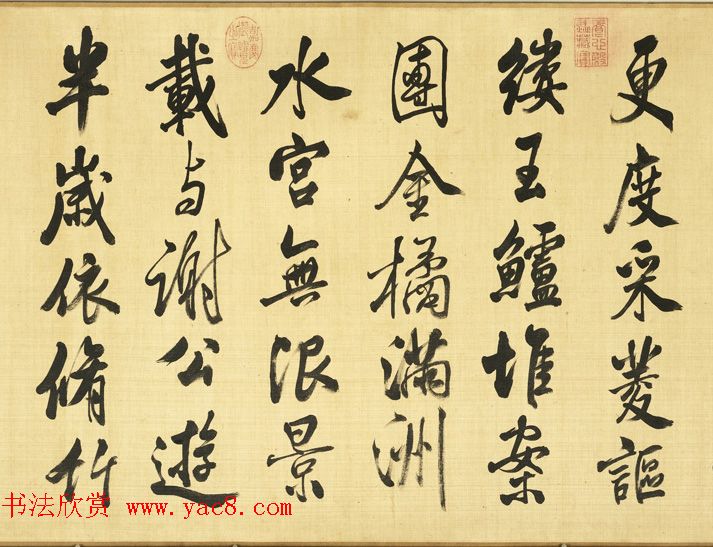 更度采菱謳
縷玉鱸堆案
團金橘滿洲
水宮無限景
載与謝公遊
半歲依脩竹
书法欣赏 www.yac8.com